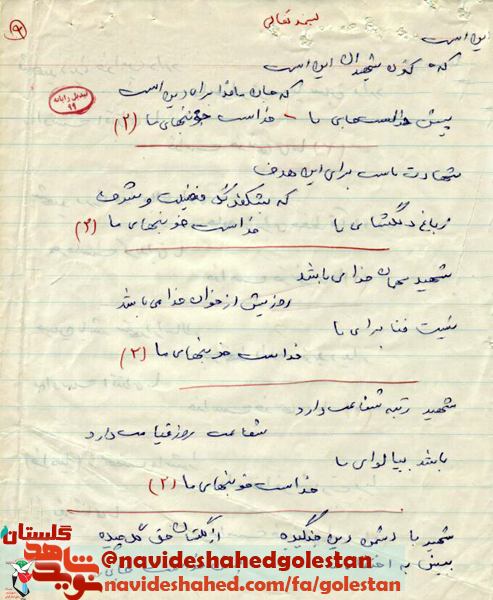 ۹
بسمه تعالی
این است
که خون شهیدان این است
که جان ما فدا برای دین است
پیش خدا ست خونبهای ما (۲)
تبدیل رایانه ۹۹
شهادت است برای این هدف
که بشکفد گل فضیلت و شرف
ز باغ دلگشای ما خداست خونبهای ما (۲)
شهید مهمان خدا می باشد
روزیش از خوان خدا می باشد
نیست فنا برای ما
خداست خونبهای ما (۲)
شهید رتبه شفاعت دارد
شفاعت روز قیامت دارد
باشد بپا لوای ما
خداست خونبهای ما (۲)
شهید با دشمن دین جنگیده از گلستان حق گل چیده
پیش به
نوید شاهد گلستان
@navideshahedgolestan
navideshahed.com/fa/golestan